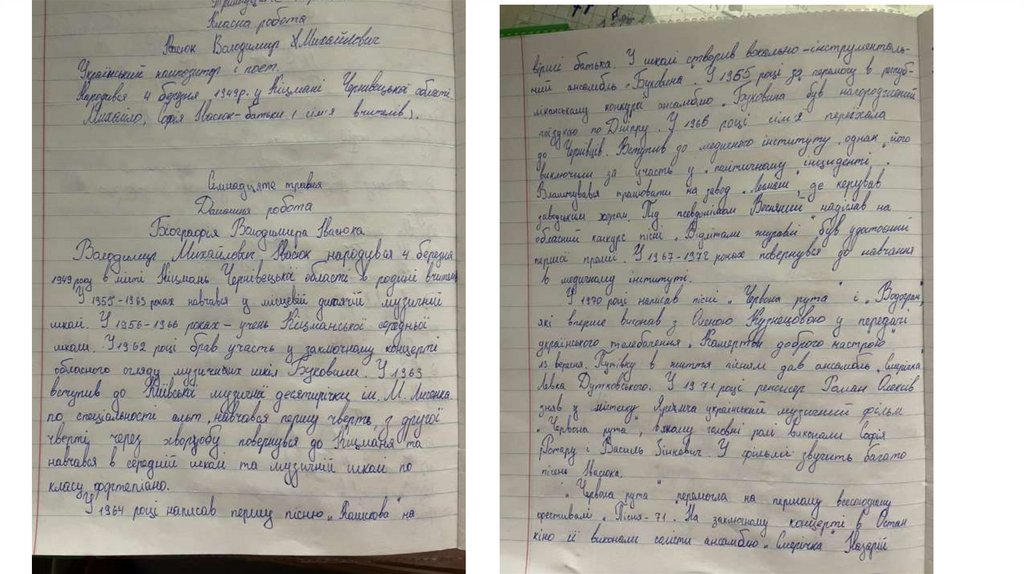 Класна робота
Івасюк Володимир Михайлович
Український композитор і поет.
Народився 4 березня 1949р. у Кіцмані Чернівецької області.
Михайло, Софія Івасюк-батьки (сім'я вчителів).
Сімнадцяте травня
Домашня робота
Біографія Володимира Івасюка
Володимир Михайлович Івасюк народився 4 березня
1949 року в місті Кіцмань Чернівецької області в родині вчителів
У 1955-1963 роках навчався у місцевій дитячій музичній
школі. У 1956-1966 роках - учень Кіцманської середньої
школи. У 1962 році брав участь у заключному концерті
обласного огляду музичних шкіл Буковини. У 1963
вступив до Київської музичної десятирічки ім. М. Лисенка
по спеціальності альт, навчався першу чверть, з другої
чверті, через хворобу повернувся до Кіцманя та
навчався в середній школі та музичній школі по
класу фортепіано.
У 1964 році написав першу пісню „Колискова" на
вірші батька. У школі створив вокально-інструменталь-
ний ансамбль „Буковина". У 1965 році за перемогу в респуб-
ліканському конкурсі ансамблю „Буковина" був нагороджений
поїздкою по Дніпру. У 1966 році сім'я переїхала
до Чернівців. Вступив до медичного інституту, однак його
виключили за участь у „політичному інциденті".
Влаштувався працювати на завод „Легмаш", де керував
заводським хором. Під псевдонімом Весняний надіслав на
обласний конкурс пісні „Відлітали журавлі" був удостоєний
першої премії. У 1967-1972 роках повернувся до навчання
в медичному інституті.
У 1970 році написав пісні „Червона рута" і „Водограй",
які вперше виконав з Оленою Кузнецовою у передачі
українського телебачення „Камертон доброго настрою"
13 вересня. Путівку в життя пісням дав ансамбль „Смерічка"
Левка Дутковського. У 1971 році режисер Роман Олексів
зняв у містечку Яремча український музичний фільм
„Червона рута", в якому головні ролі виконали Софія
Ротару і Василь Зінкевич. У фільмі звучить багато
пісень Івасюка.
„Червона рута" перемогла на першому всесоюзному
фестивалі „Пісня-71". На заключному концерті в Остан
кіно її виконали солісти ансамблю „Смерічка" Назарій